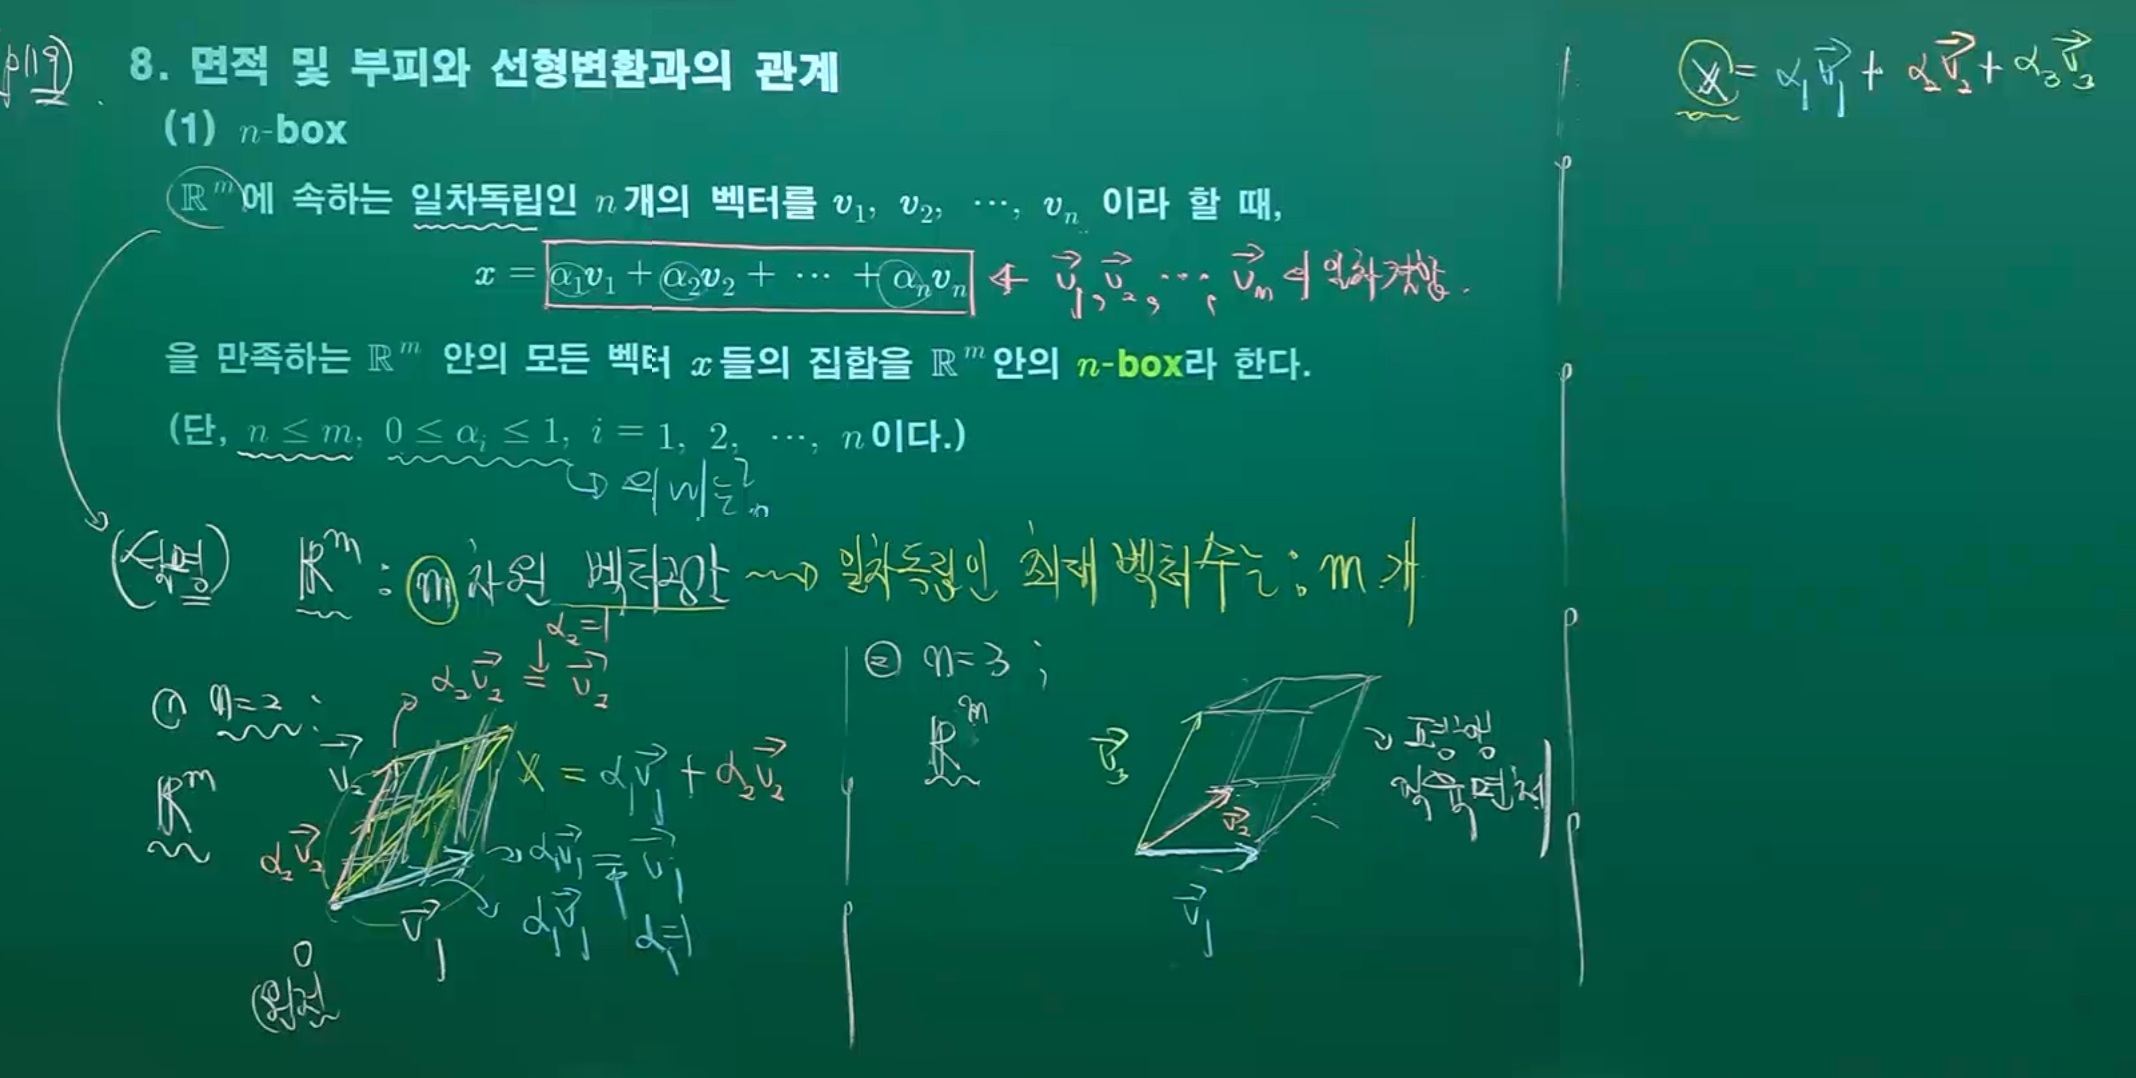 p119
8. 면적 및 부피와 선형변환과의 관계
(1) n-box
ℝᵐ에 속하는 일차독립인 n개의 벡터를 v₁, v₂, ⋯, vₙ 이라 할 때,
x = α₁v₁ + α₂v₂ + ⋯ + αₙvₙ ← v⃗₁, v⃗₂, ⋯, v⃗ₙ의 일차결합.
을 만족하는 ℝᵐ 안의 모든 벡터 x들의 집합을 ℝᵐ안의 n-box라 한다.
(단, n ≤ m, 0 ≤ αᵢ ≤ 1, i = 1, 2, ⋯, n이다.)
의미는?
(설명) ℝᵐ : m차원 벡터공간 ⇝ 일차독립인 최대 벡터수는 : m개
① n=2 :
ℝᵐ
α₂=1
α₂v⃗₂ = v⃗₂
v⃗₂
x = α₁v⃗₁ + α₂v⃗₂
α₂v⃗₂
α₁v⃗₁ = v⃗₁
α₁v⃗₁
α₁=1
v⃗₁
0
(원점
② n=3 ;
ℝᵐ
v⃗₃
v⃗₂
v⃗₁
평행
육면체
x = α₁v⃗₁ + α₂v⃗₂ + α₃v⃗₃